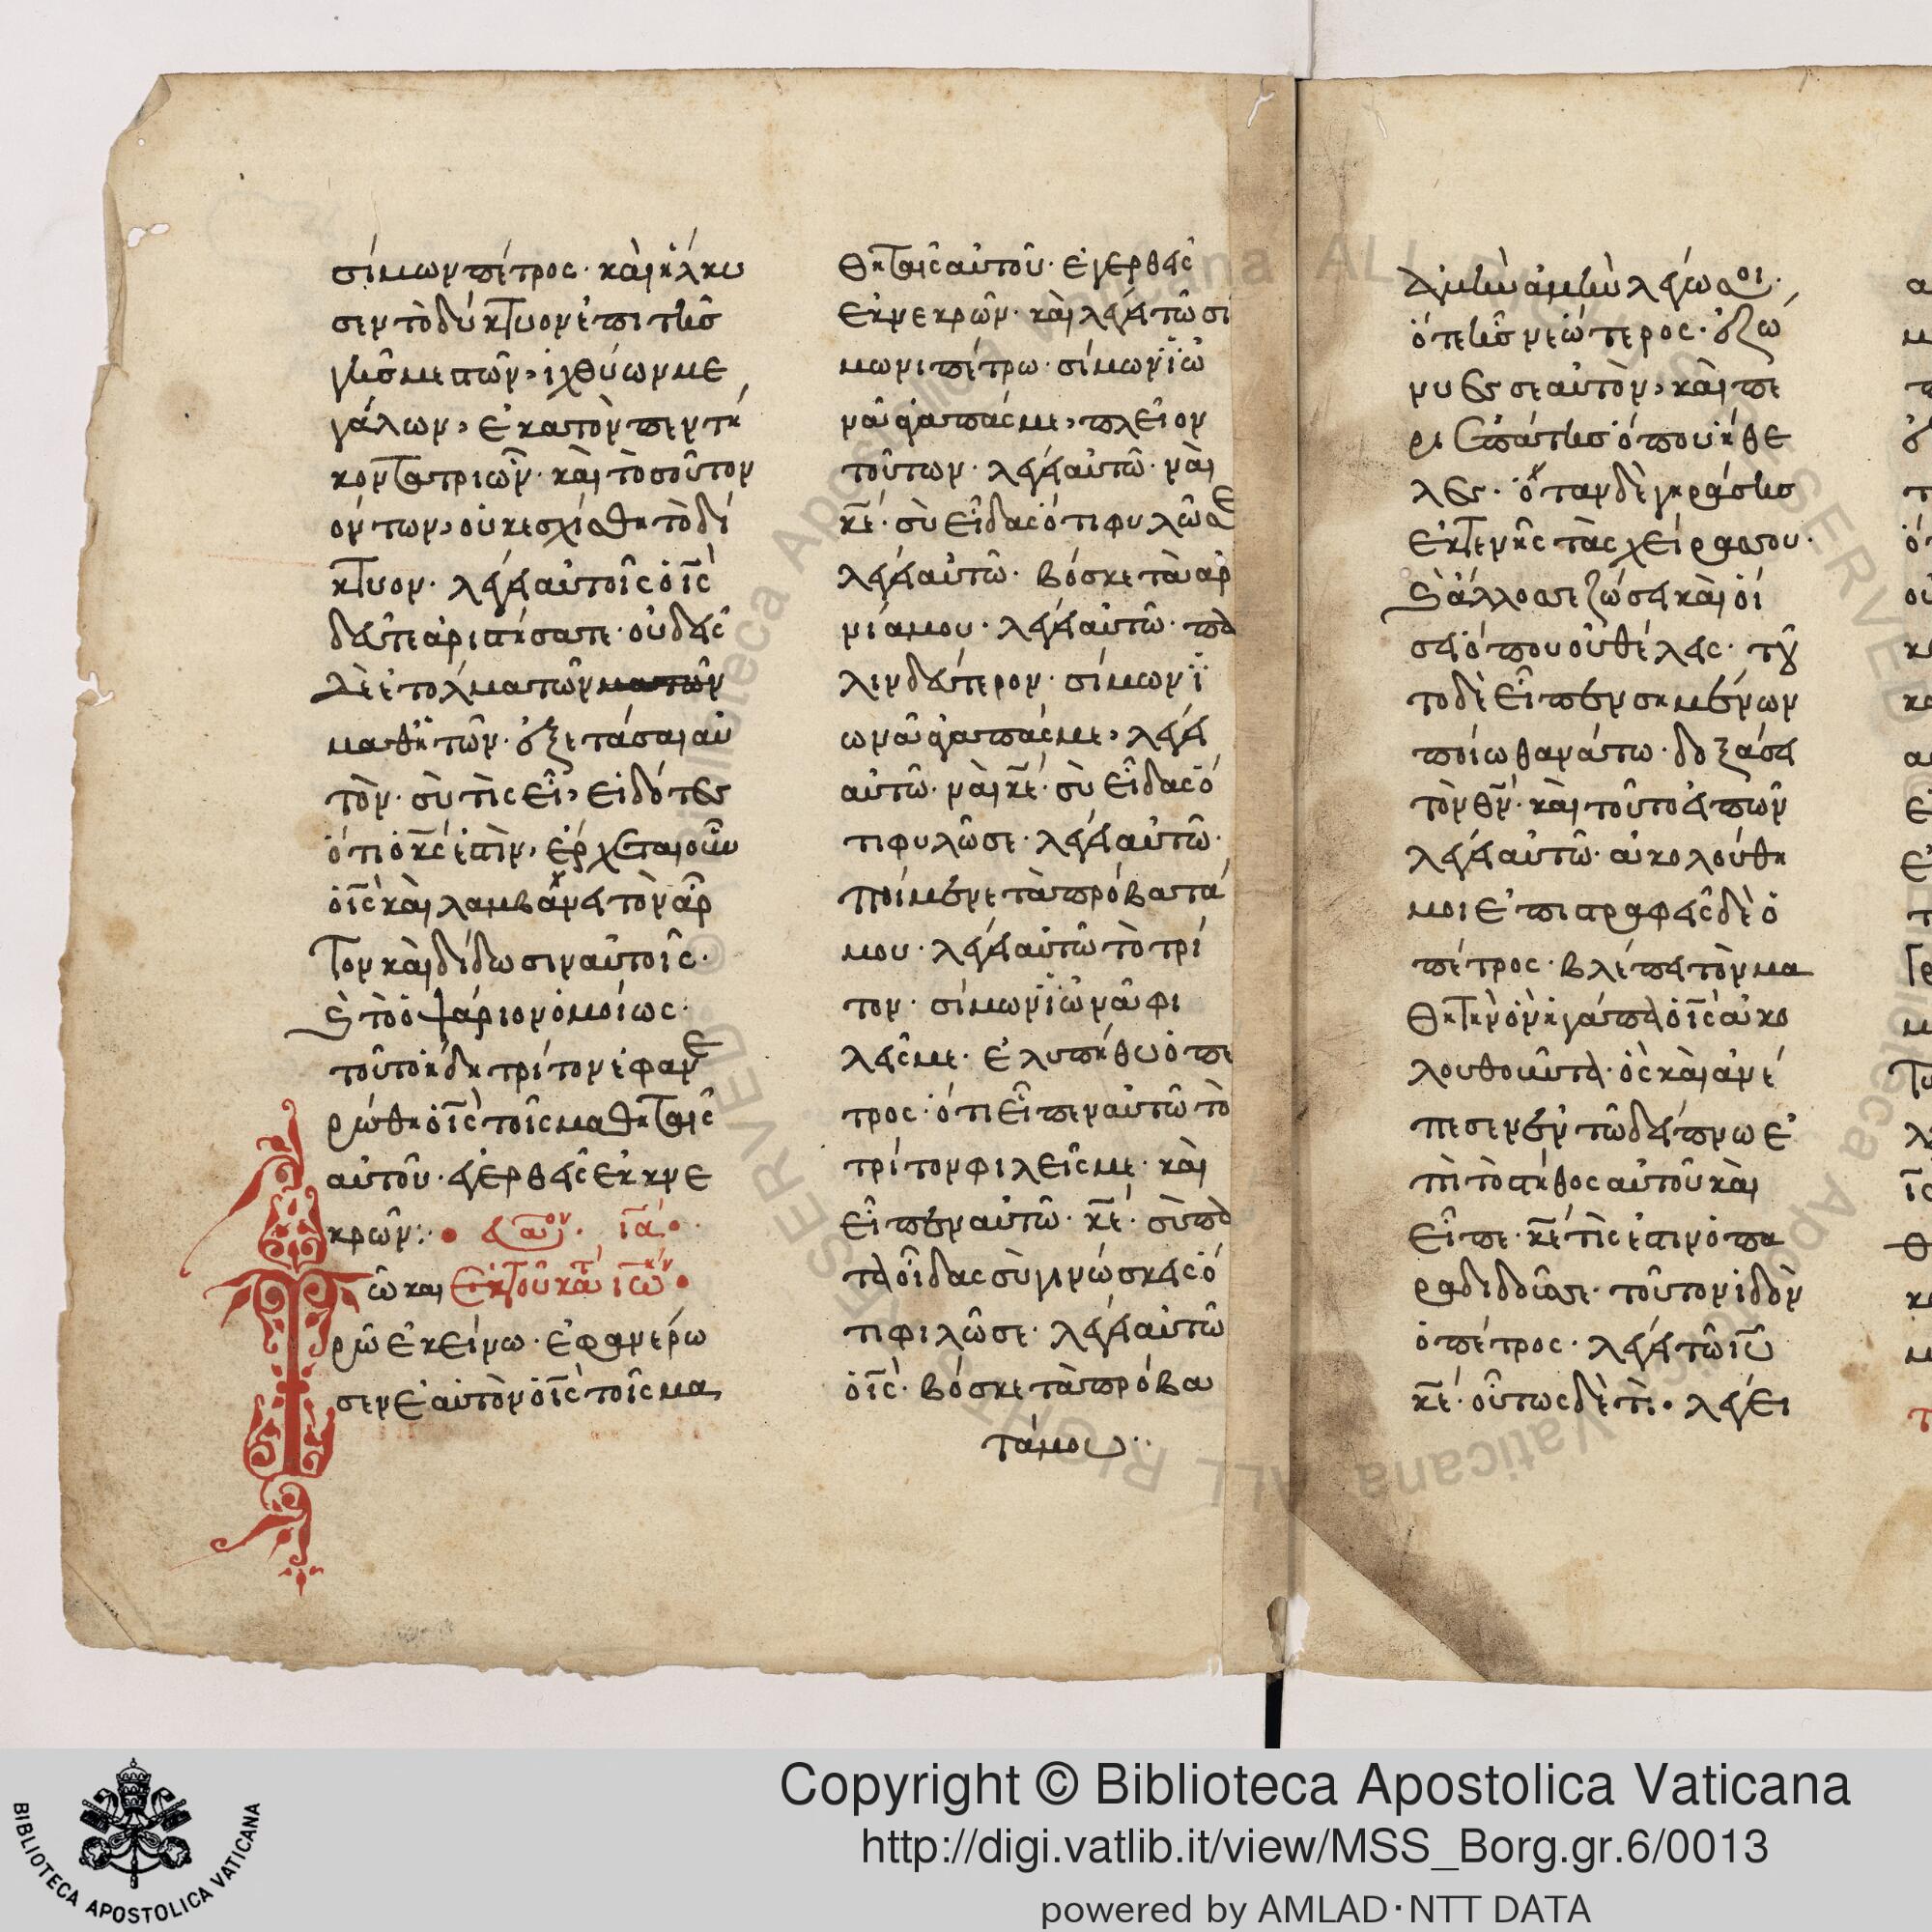 σίμων πέτρος· καὶ ἥλκυ
σεν τὸ δύκτυον ἐπι τῆσ
γῆσ μεστῶν, ἰχθύων με
γάλων, ἑκατὸν πεντή
κοντα τριῶν· καὶ τοσοῦτον
όντων, οὐκ εσχίσθη τὸ δί
κτυον· λέγει αὐτοῖς ὁ ις
δεῦτε ἀριστήσατε· οὐδεὶς
δὲ ἐτόλμα τῶν
μαθητῶν· ἐξετάσαι αὐ
τὸν· σὺ τίς εἶ, εἰδότες
ὅτι ὁ κς ἐστὶν, ἔρχεται οῦν
ὁ ις καὶ λαμβάνει τὸν ἄρ
τον καὶ δίδωσιν αὐτοῖς·
καὶ τὸ ὀψάριον ὁμοίως·
τοῦτο ἤδη τρίτον ἐφανε
ρώθη ὁ ις τοῖς μαθηταῖς
αὐτοῦ· ἐγερθεὶς ἐκ νε
κρῶν:
ῶ και Εκ τοῦ κατ ιω
ρῶ ἐκείνω· ἐφανέρω
σεν ἑαυτὸν ὁ ις τοῖς μα
θηταῖς αὐτοῦ· ἐγερθεὶς
ἐκ νεκρῶν· καὶ λέγει τῶ σί
μωνι πέτρω· σίμων ϊω
νᾶ ἀγαπάς με, πλεῖον
τούτων· λέγει αὐτῶ· ναὶ
κε· σὺ εἶδας ὅτι φυλῶ σε
λέγει αὐτῶ· βόσκε τὰ ἀρ
νία μου· λέγει αὐτῶ· πά
λιν δεύτερον· σίμων ϊ
ωνᾶ ἀγαπάς με, λέγει
αὐτῶ· ναὶ κε· σὺ εἶδας ὅ
τι φυλῶ σε· λέγει αὐτῶ·
ποίμενε τὰ πρόβατά
μου· λέγει αὐτῶ τὸ τρί
τον· σίμων ϊωνᾶ φι
λεῖς με· ἐλυπήθω ὁ πέ
τρος· ὅτι εἶπεν αὐτῶ τὸ
τρίτον φιλεῖς με· καὶ
εἶπεν αὐτῶ· κε· σὺ πά
τα οἶδας σὺ γινώσκεις ὅ
τι φιλῶ σε· λέγει αὐτῶ
ὁ ις· βόσκε τὰ πρόβα
τά μου··
Ἀμὴν ἀμὴν λέγω σοι·
ὅτε ῆς νεώτερος· ἐζώ
νυες σεαυτὸν, καὶ πε
ριεπάτης ὅπου ἤθε
λες· ὅταν δὲ γηράσης
ἐκτενῆς τὰς χεῖρας σου·
καὶ ἄλλος σε ζώσει καὶ οἴ
σει ὅπου οὐ θέλεις· τοῦ
το δὲ εἶπεν σημένων
ποίω θανάτω· δοξάσει
τὸν θν· καὶ τοῦτο εἰπῶν
λέγει αὐτῶ· ἀκολούθη
μοι ἐπιστραφεὶς δὲ ὁ
πέτρος· βλέπει τὸν μα
θητὴν ὃν ἠγάπα ὁ ις ἀκο
λουθοῦντα· ὃς καὶ ἀνέ
πεσεν ἐν τῶ δείπνω ἐ
πὶ τὸ στῆθος αὐτοῦ καὶ
εἶπε· κε τίς ἐστιν ὁ πα
ραδιδοῦς σε· τοῦτον ἰδὼν
ὁ πέτρος· λέγει τῶ ιυ
κε· οὗτως δὲ τὶ· λέγει
Copyright © Biblioteca Apostolica Vaticana
http://digi.vatlib.it/view/MSS_Borg.gr.6/0013
powered by AMLAD·NTT DATA
BIBLIOTECA APOSTOLICA VATICANA